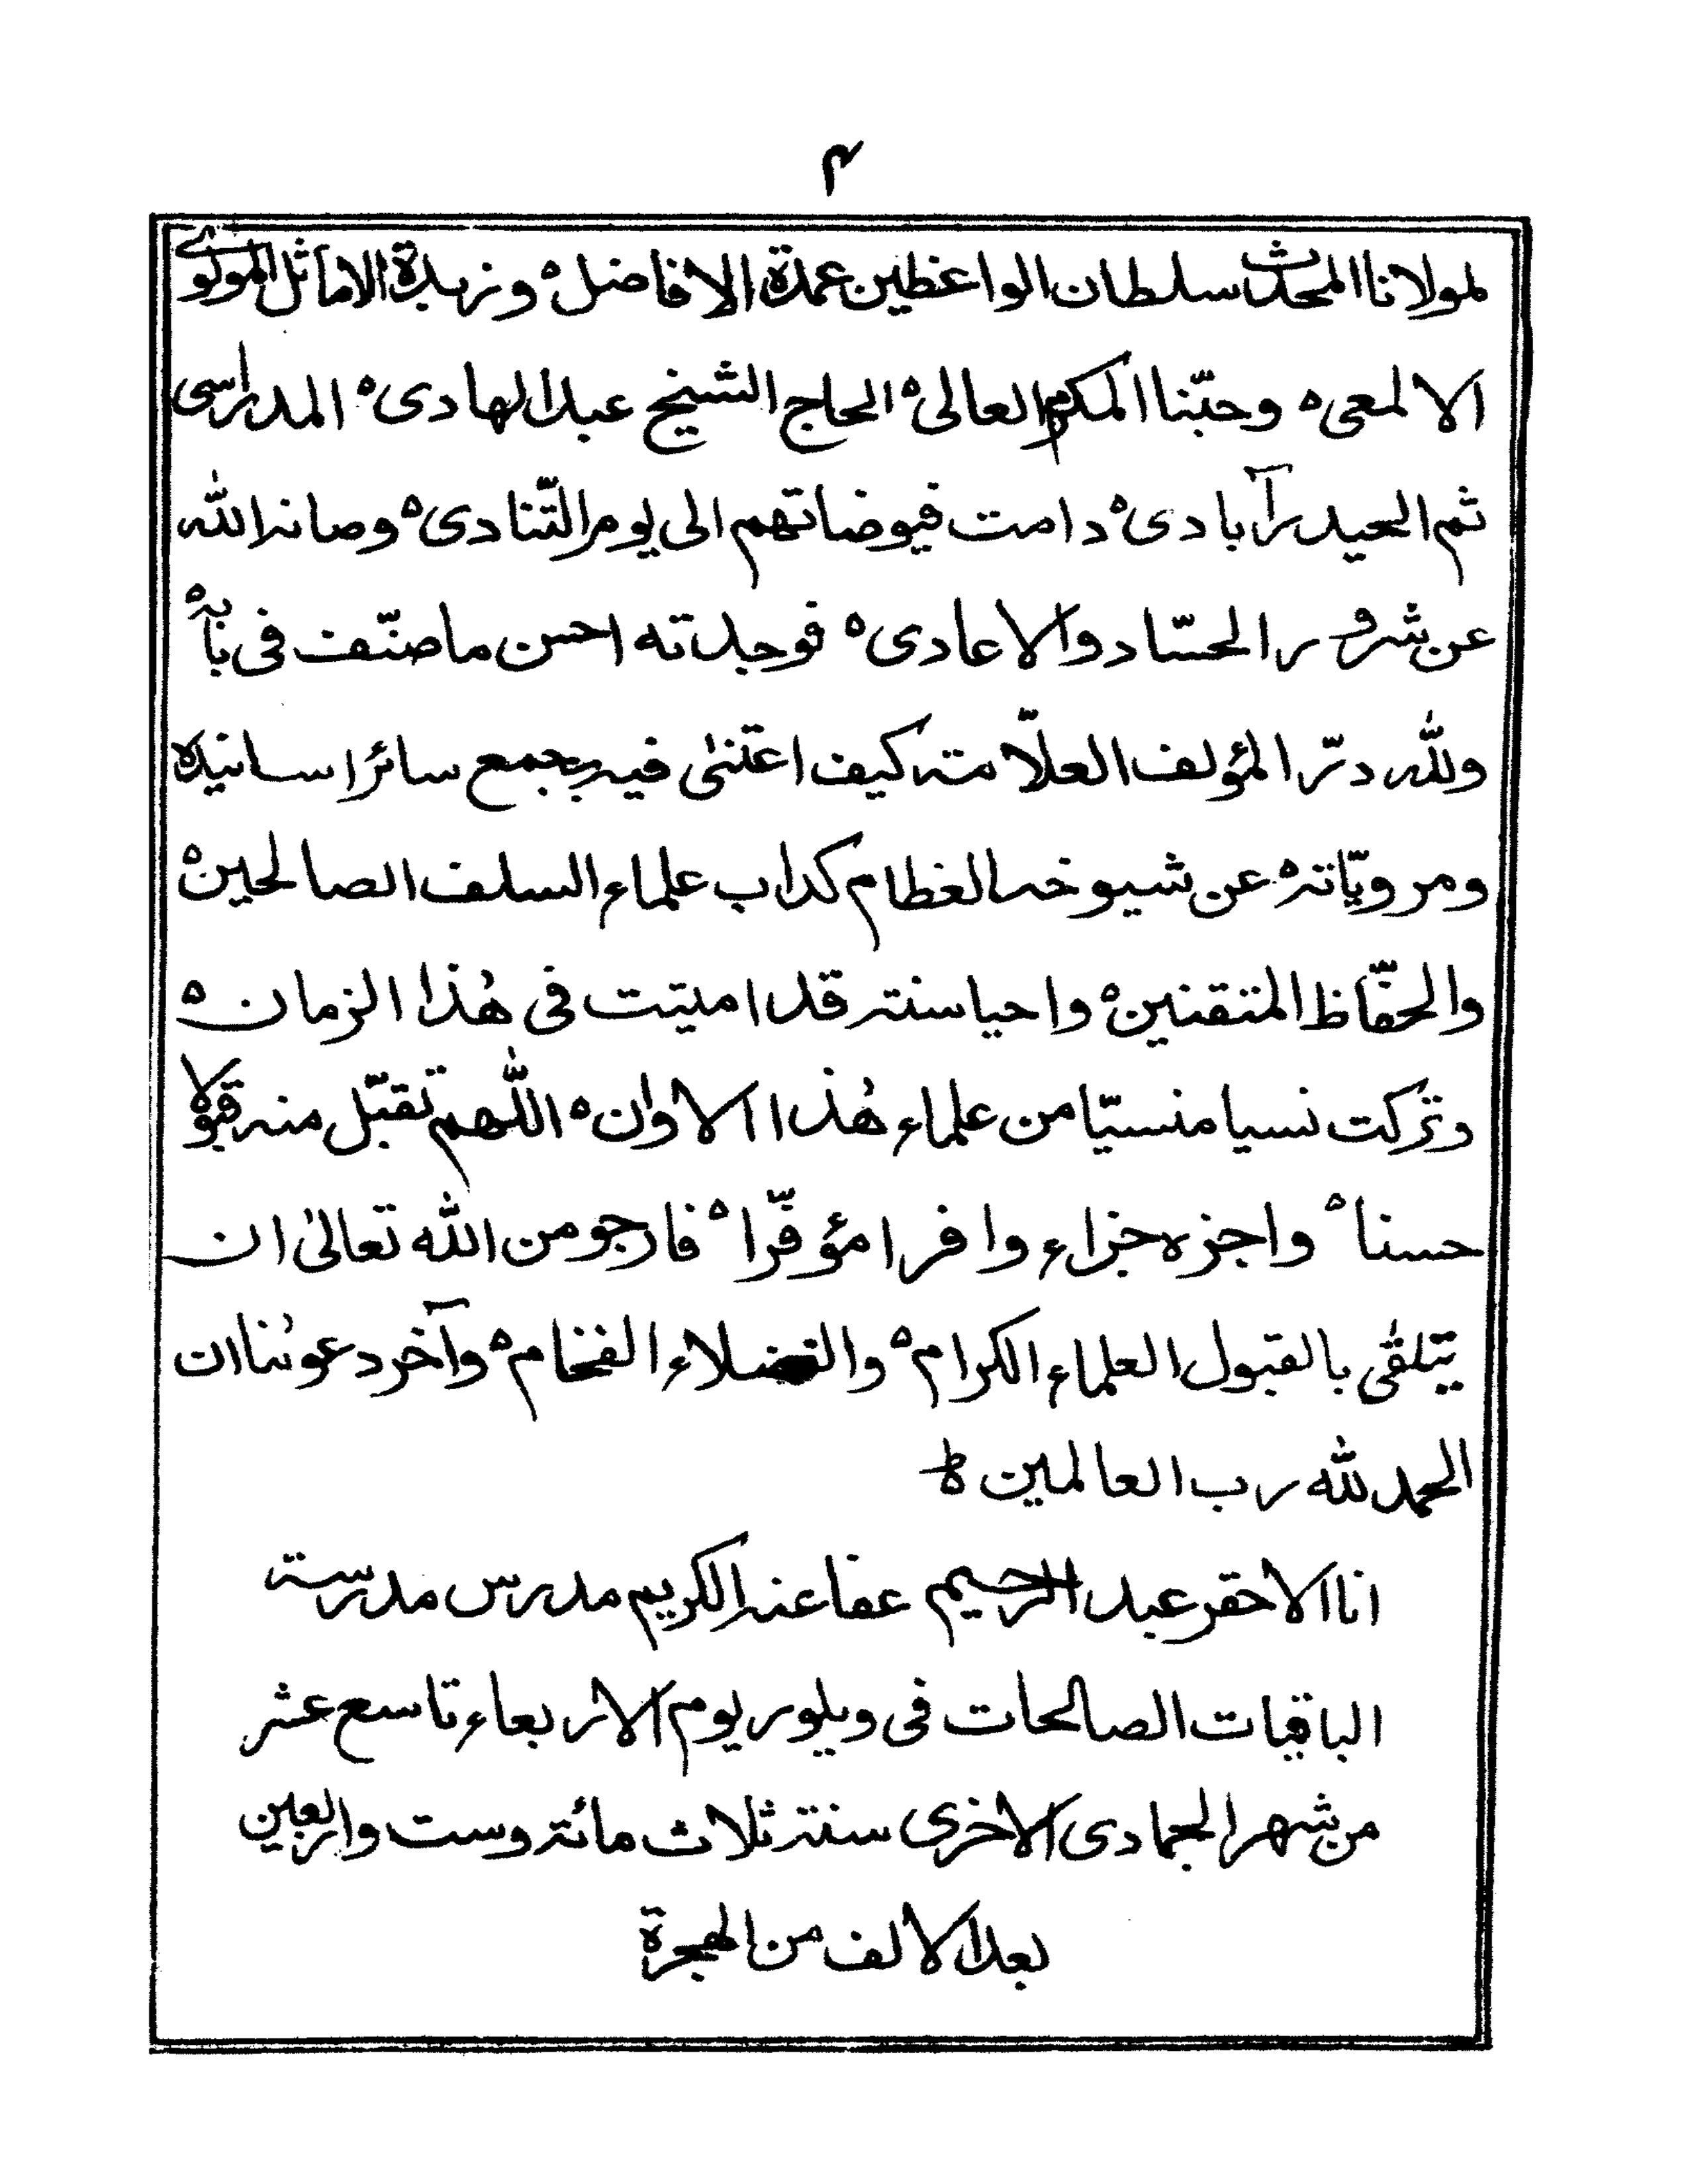 ۴
لمولانا المحدث سلطان الواعظين عمدة الافاضل ه و زبدة الاماثل المولوے
الالمعى ه وحبّنا المكرم العالى ه الحاج الشيخ عبد الهادى ه المدراسى
ثم الحيدرآبادى ه دامت فيوضاتهم الى يوم التّنادى ه وصانه الله
عن شرور الحسّاد والاعادى ه فوجدته احسن ما صنّف فى بابه ه
ولله درّ المؤلف العلّامة كيف اعتنىٰ فيه بجمع سائر اسانيده
ومرويّاته ه عن شيوخه العظام كداب علماء السلف الصالحين ه
والحفّاظ المتقنين ه واحيا سنة قد اميتت فى هٰذا الزمان ه
وتركت نسيا منسيّا من علماء هٰذا الاوان ه اللّٰهم تقبّل منه قبولا
حسنا ه واجزه جزاء وافرا مؤفّرا ه فارجو من الله تعالىٰ ان
يتلقّى بالقبول العلماء الكرام ه والفضلاء الفخام ه وآخر دعوٰنا ان
الحمد لله رب العالمين ه ط
انا الاحقر عبد الرحيم عفا عنه الكريم مدرس مدرسة
الباقيات الصالحات فى ويلور يوم الاربعاء تاسع عشر
من شهر الجمادى الاخرى سنة ثلاث مائة وست واربعين
بعد الالف من الهجرة